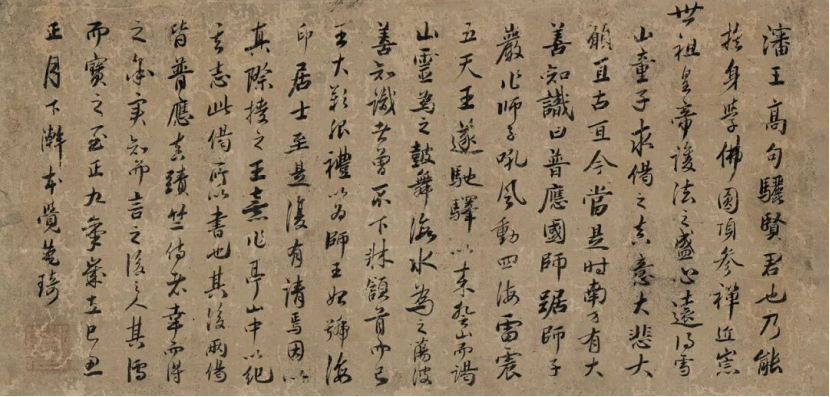 瀋王高句驪賢君也乃能
捨身學佛圓頂參禪近宗
世祖皇帝護法之盛心遠得雪
山童子求偈之真意大悲大
願亘古亘今當是时南方有大
善知識曰普應國師踞師子
嚴作师子吼風動四海雷震
五天王遂馳驛以来登山而謁
山靈為之鼓舞海水為之蕩波
善知識者曾不下牀頷首而已
王大歎服禮以為師王始號海
印居士至是復有請焉因以
真際授之王喜作亭山中以紀
其志此偈所以書也其後兩偈
皆普應真蹟竺傳君幸而得
之余實知而言之後之人其傳
而寶之至正九年歲在己丑
正月下澣本覺梵琦